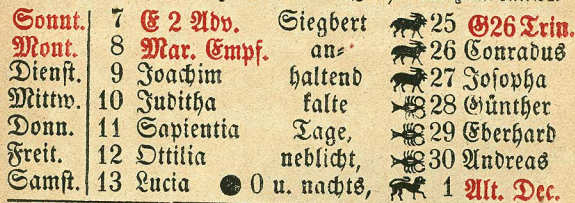 Sonnt. 7 E 2 Adv. Siegbert 25 G26 Trin.
Mont. 8 Mar. Empf. an= 26 Conradus
Dienst. 9 Joachim haltend 27 Josopha
Mittw. 10 Juditha kalte 28 Günther
Donn. 11 Sapientia Tage, 29 Eberhard
Freit. 12 Ottilia neblicht, 30 Andreas
Samst. 13 Lucia 0 u. nachts, 1 Alt. Dec.